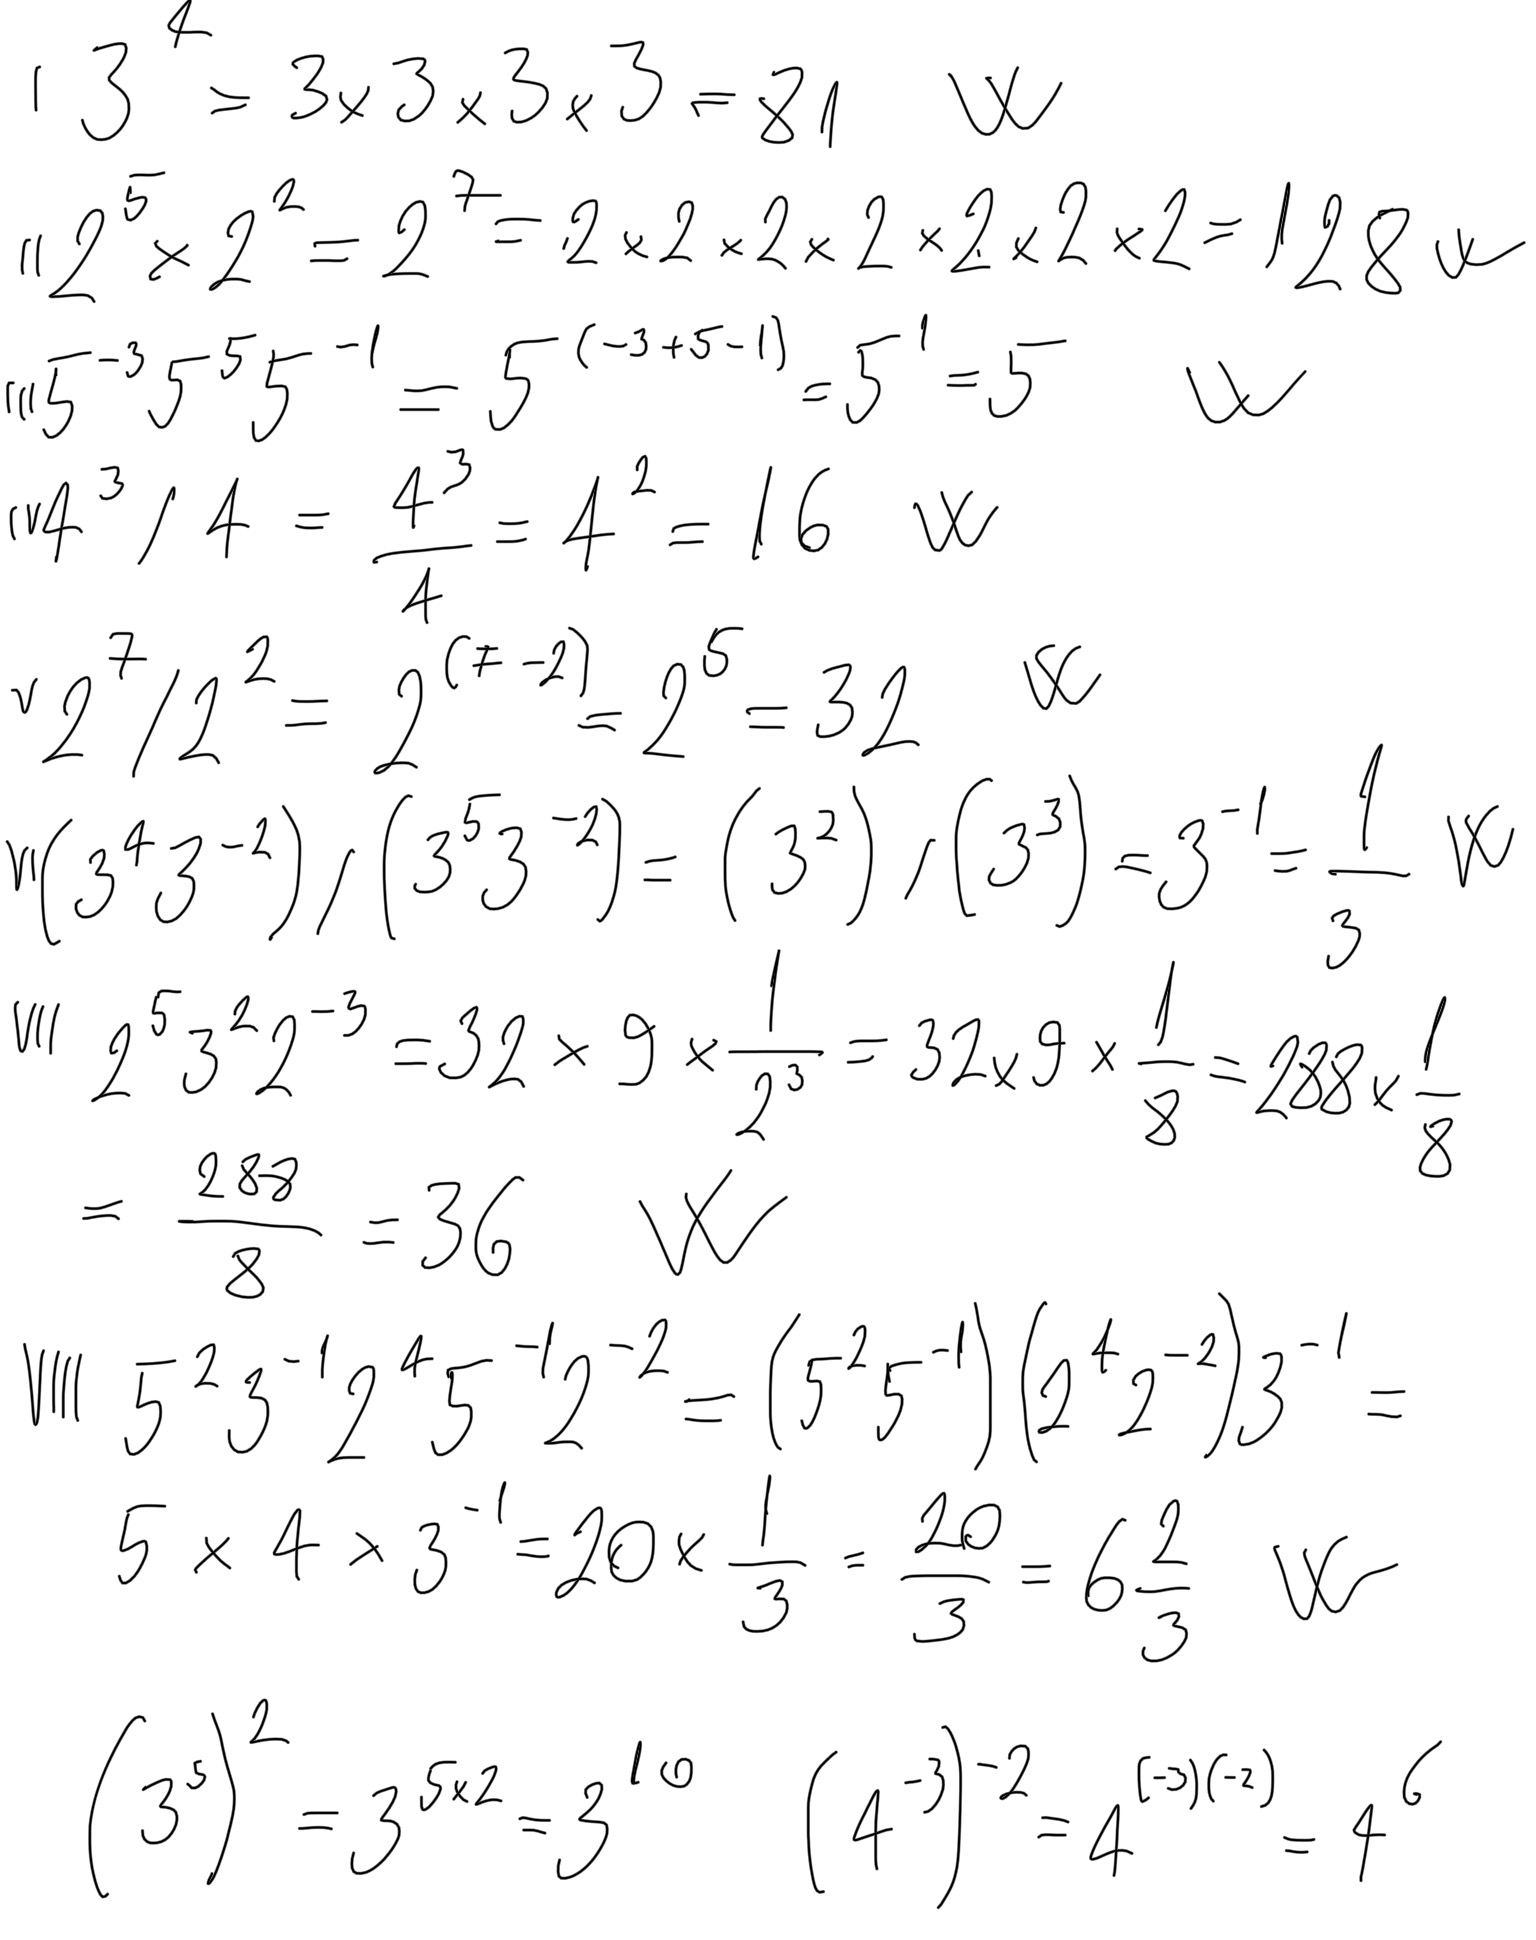 I 3⁴ = 3 × 3 × 3 × 3 = 81 W
II 2⁵ × 2² = 2⁷ = 2 × 2 × 2 × 2 × 2 × 2 × 2 = 128 W
III 5⁻³ 5⁵ 5⁻¹ = 5^(-3+5-1) = 5¹ = 5 W
IV 4³ / 4 = 4³/4 = 4² = 16 W
V 2⁷ / 2² = 2^(7-2) = 2⁵ = 32 W
VI (3⁴ 3⁻²) / (3⁵ 3⁻²) = (3²) / (3³) = 3⁻¹ = 1/3 W
VII 2⁵ 3² 2⁻³ = 32 × 9 × 1/2³ = 32 × 9 × 1/8 = 288 × 1/8
= 288/8 = 36 W
VIII 5² 3⁻¹ 2⁴ 5⁻¹ 2⁻² = (5² 5⁻¹) (2⁴ 2⁻²) 3⁻¹ =
5 × 4 × 3⁻¹ = 20 × 1/3 = 20/3 = 6 2/3 W
(3⁵)² = 3^(5×2) = 3¹⁰ (4⁻³)⁻² = 4^(-3)(-2) = 4⁶